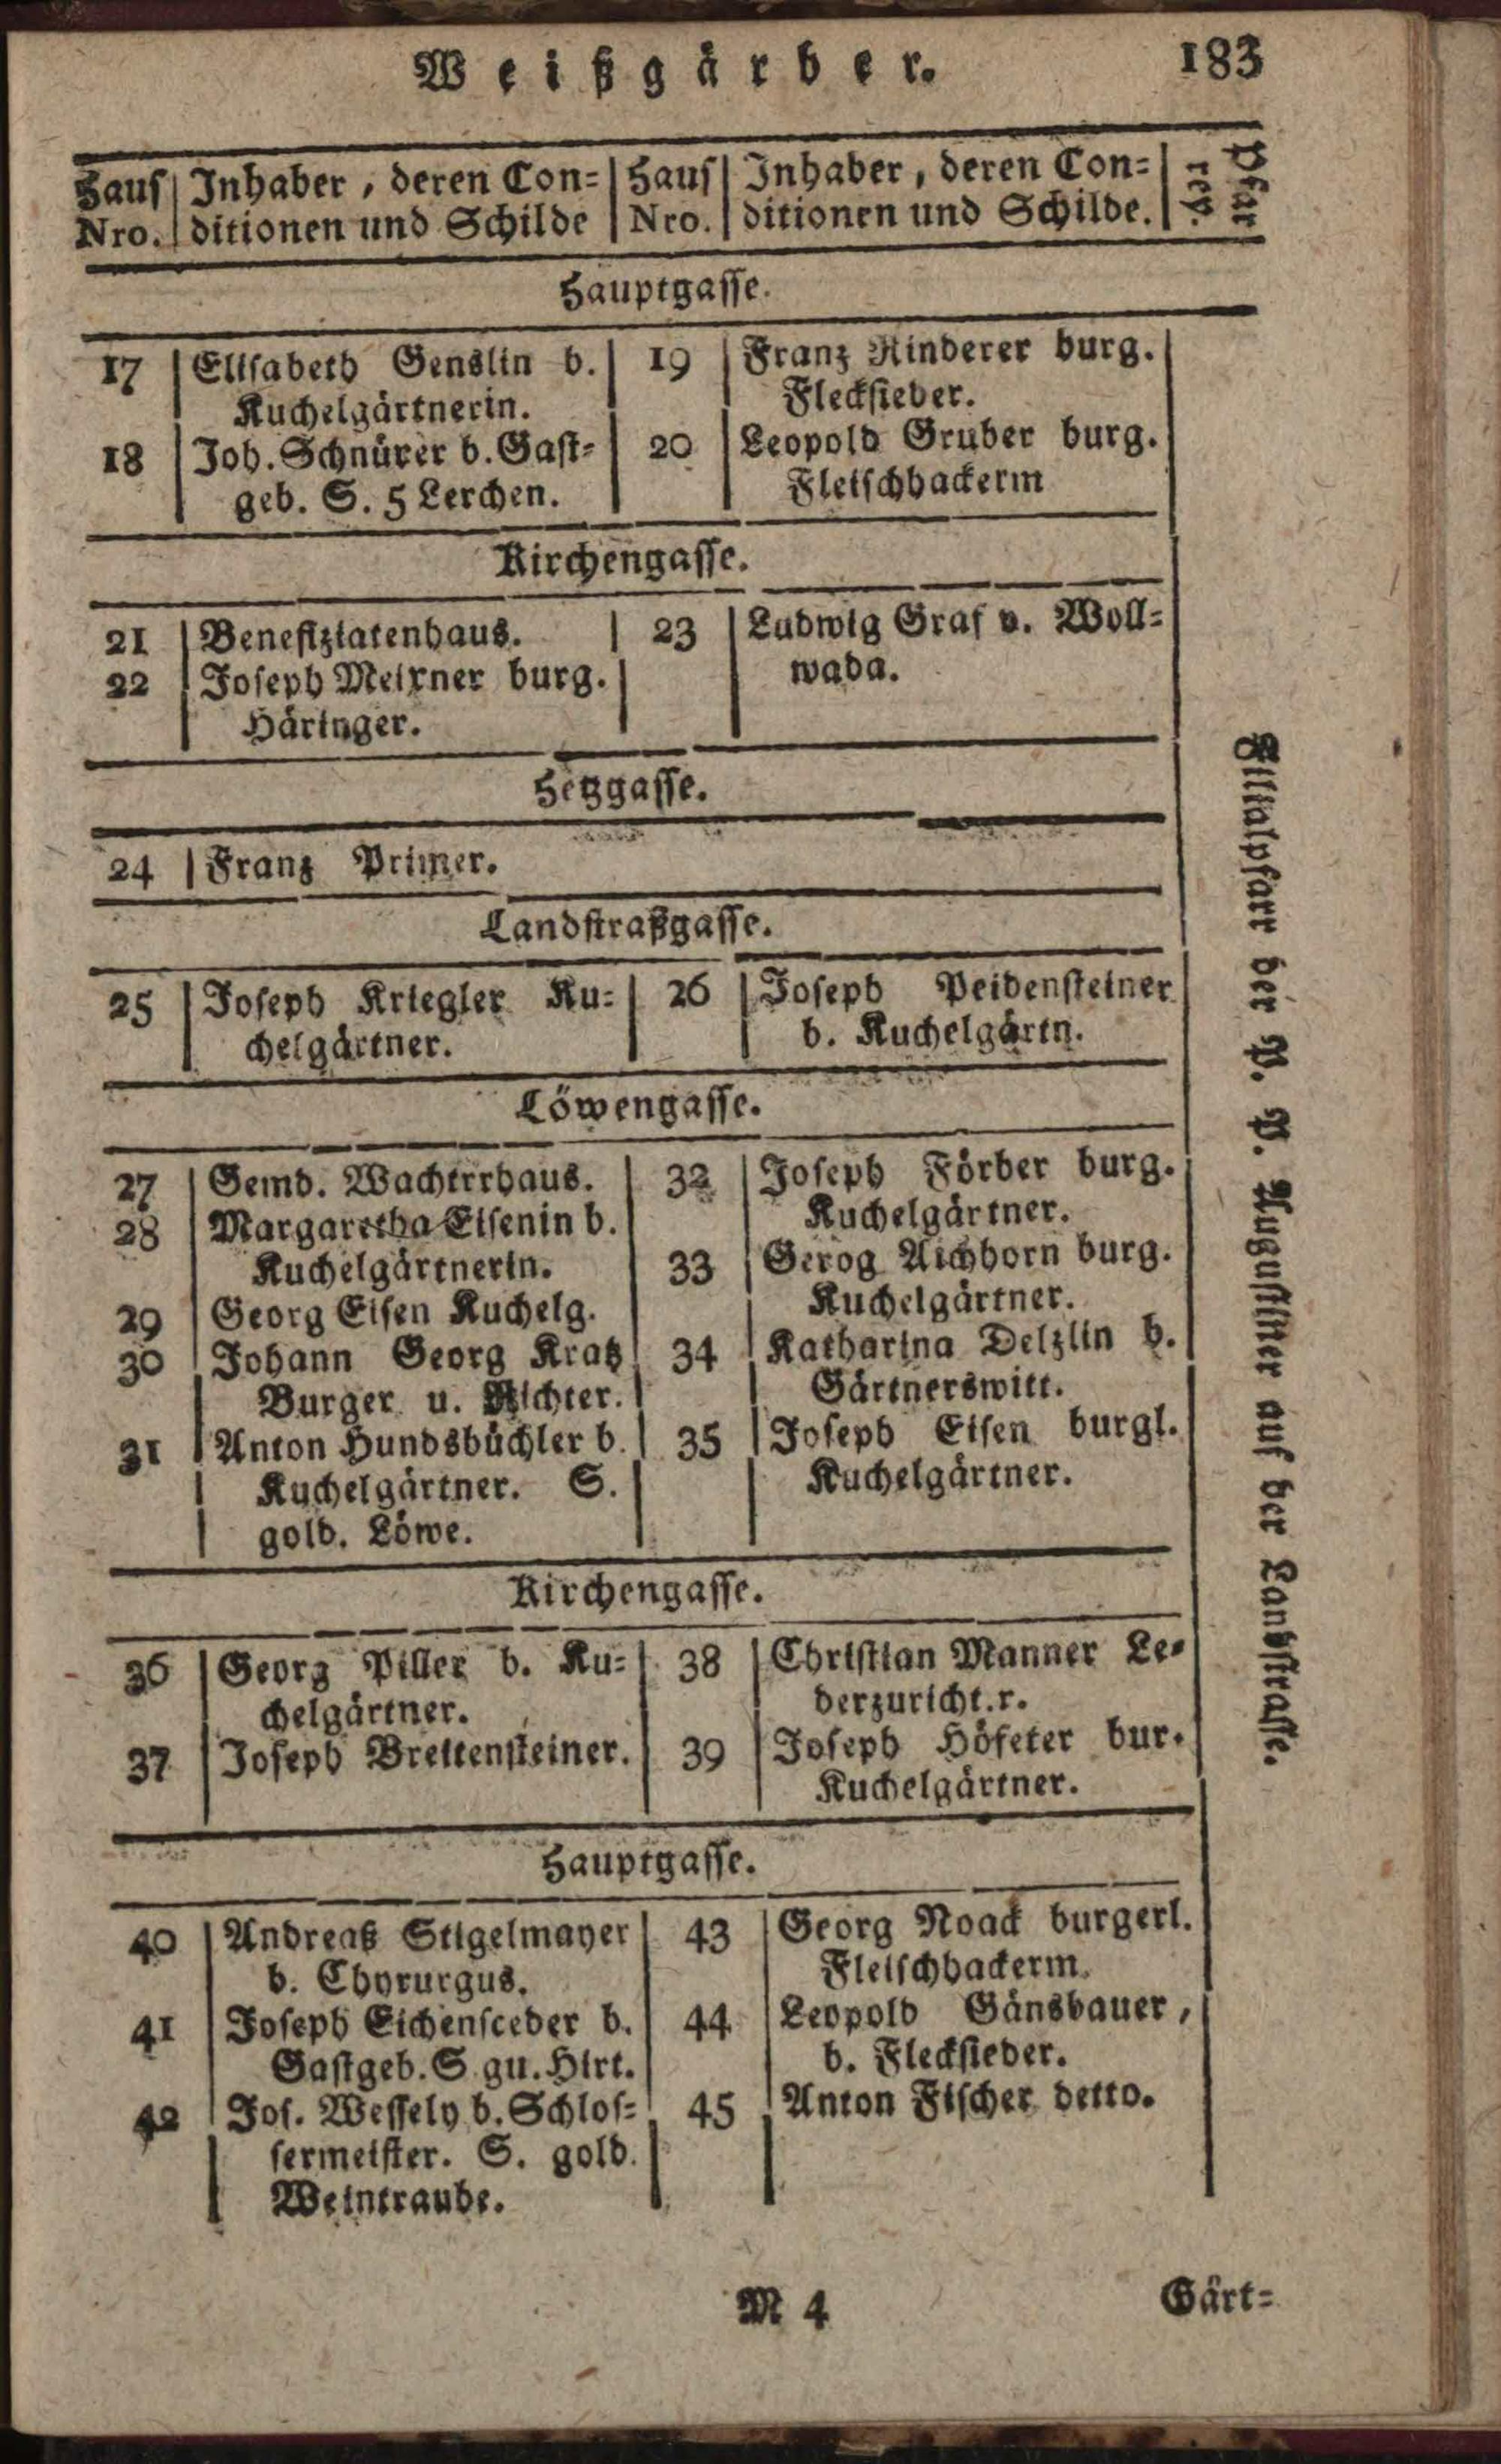 Weißgärber. 183
Haus Nro.
Inhaber, deren Con-
ditionen und Schilde
Haus Nro.
Inhaber, deren Con-
ditionen und Schilde.
Pfar
rey.
Hauptgasse.
17 Elisabeth Genslin b.
Kuchelgärtnerin.
18 Joh. Schnürer b. Gast-
geb. S. 5 Lerchen.
19 Franz Rinderer burg.
Flecksieder.
20 Leopold Gruber burg.
Fleischhackerm
Kirchengasse.
21 Benefiziatenhaus.
22 Joseph Meixner burg.
Häringer.
23 Ludwig Graf v. Woll-
wada.
Hetzgasse.
24 Franz Primer.
Landstraßgasse.
25 Joseph Kriegler Ku-
chelgärtner.
26 Joseph Peidensteiner
b. Kuchelgärtn.
Löwengasse.
27 Gemd. Wachterrhaus.
28 Margaretha Eisenin b.
Kuchelgärtnerin.
29 Georg Eisen Kuchelg.
30 Johann Georg Kratz
Burger u. Richter.
31 Anton Hundsbüchler b.
Kuchelgärtner. S.
gold. Löwe.
32 Joseph Förber burg.
Kuchelgärtner.
33 Gerog Aichhorn burg.
Kuchelgärtner.
34 Katharina Delzlin b.
Gärtnerswitt.
35 Joseph Eisen burgl.
Kuchelgärtner.
Kirchengasse.
36 Georg Piller b. Ku-
chelgärtner.
37 Joseph Breitensteiner.
38 Christian Manner Le-
derzuricht.r.
39 Joseph Höfeter bur.
Kuchelgärtner.
Hauptgasse.
40 Andreaß Stigelmayer
b. Chyrurgus.
41 Joseph Eichensceder b.
Gastgeb. S. gu. Hirt.
42 Jos. Wessely b. Schlos-
sermeister. S. gold.
Weintraube.
43 Georg Noack burgerl.
Fleischhackerm.
44 Leopold Gänsbauer,
b. Flecksieder.
45 Anton Fischer detto.
Fillialpfarr der P. P. Augustiner auf der Landstrasse.
M 4 Gärt-